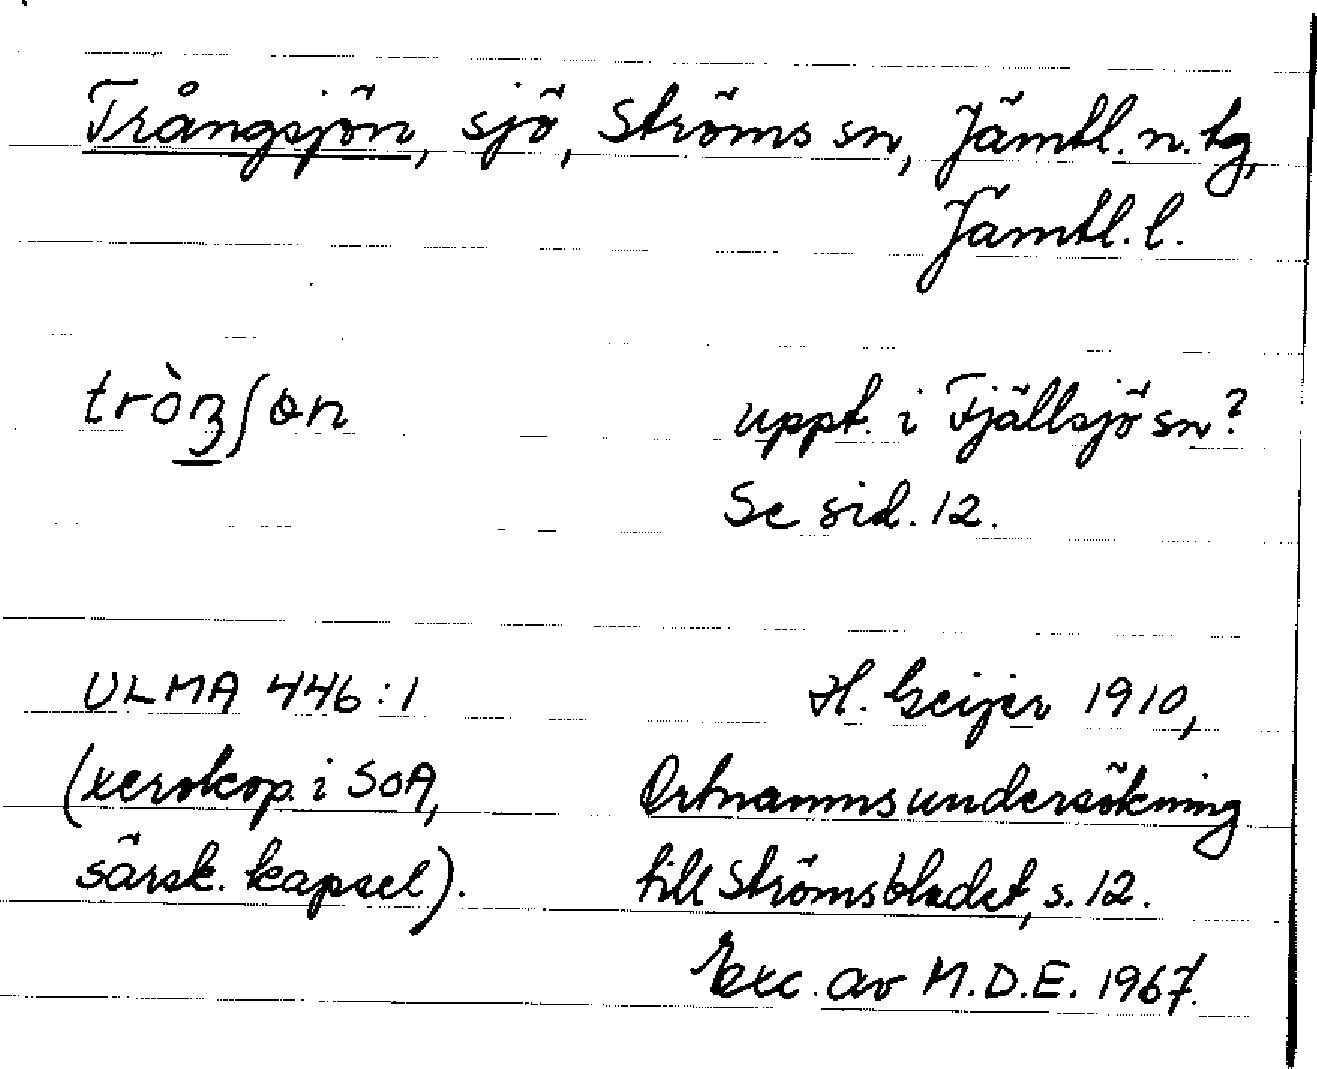 Trångsjön, sjö, Ströms sn, Jämtl. n. tg,
Jämtl. l.
uppt. i Fjällsjö sn?
Se sid. 12.
ULMA 446:1
H. Geijer 1910,
(xerokop. i SOA,
Ortnamnsundersökning
särsk. kapsel).
till Strömsbladet, s. 12.
Exc. av M.D.E. 1967.